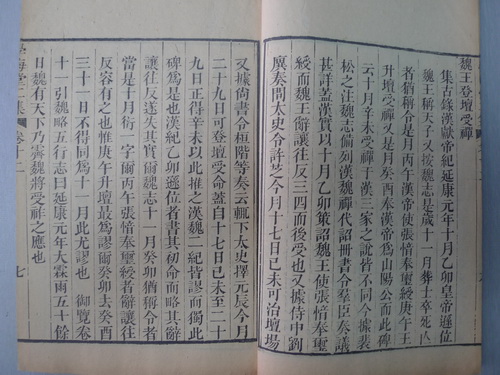 魏王登壇受禪
集古錄漢獻帝紀延康元年十月乙卯皇帝遜位
魏王稱天子又按魏志是歲十一月葬士卒死亡
者猶稱令是月丙午漢帝使張愔奉璽綬庚午王
升壇受禪又是月癸酉奉漢帝為山陽公而此碑
云十月辛未受禪于漢三家之說皆不同今據裴
松之注魏志備列漢魏禪代詔冊書令羣臣奏議
甚詳蓋漢實以十月乙卯策詔魏王使張愔奉璽
綬而魏王辭讓往反三四而後受也又據侍中劉
廙奏問太史令許芝今月十七日己未可治壇場
又據尚書令桓階等奏云輒下太史擇元辰今月
二十九日可登壇受命蓋自十七日己未至二十
九日正得辛未以此推之漢魏二紀皆謬而獨此
碑為是也漢紀乙卯遜位者書其初命而略其辭
讓往反遂失其實爾魏志十一月癸卯猶稱令者
當是十月衍一字爾丙午張愔奉璽綬者辭讓往
反容有之也惟庚午升壇最為謬爾癸卯去癸酉
三十一日不得同為十一月此尤謬也 御覽卷
十一引魏略五行志曰延康元年大霖雨五十餘
日魏有天下乃霽魏將受祚之應也
海堂二集 卷十二 七